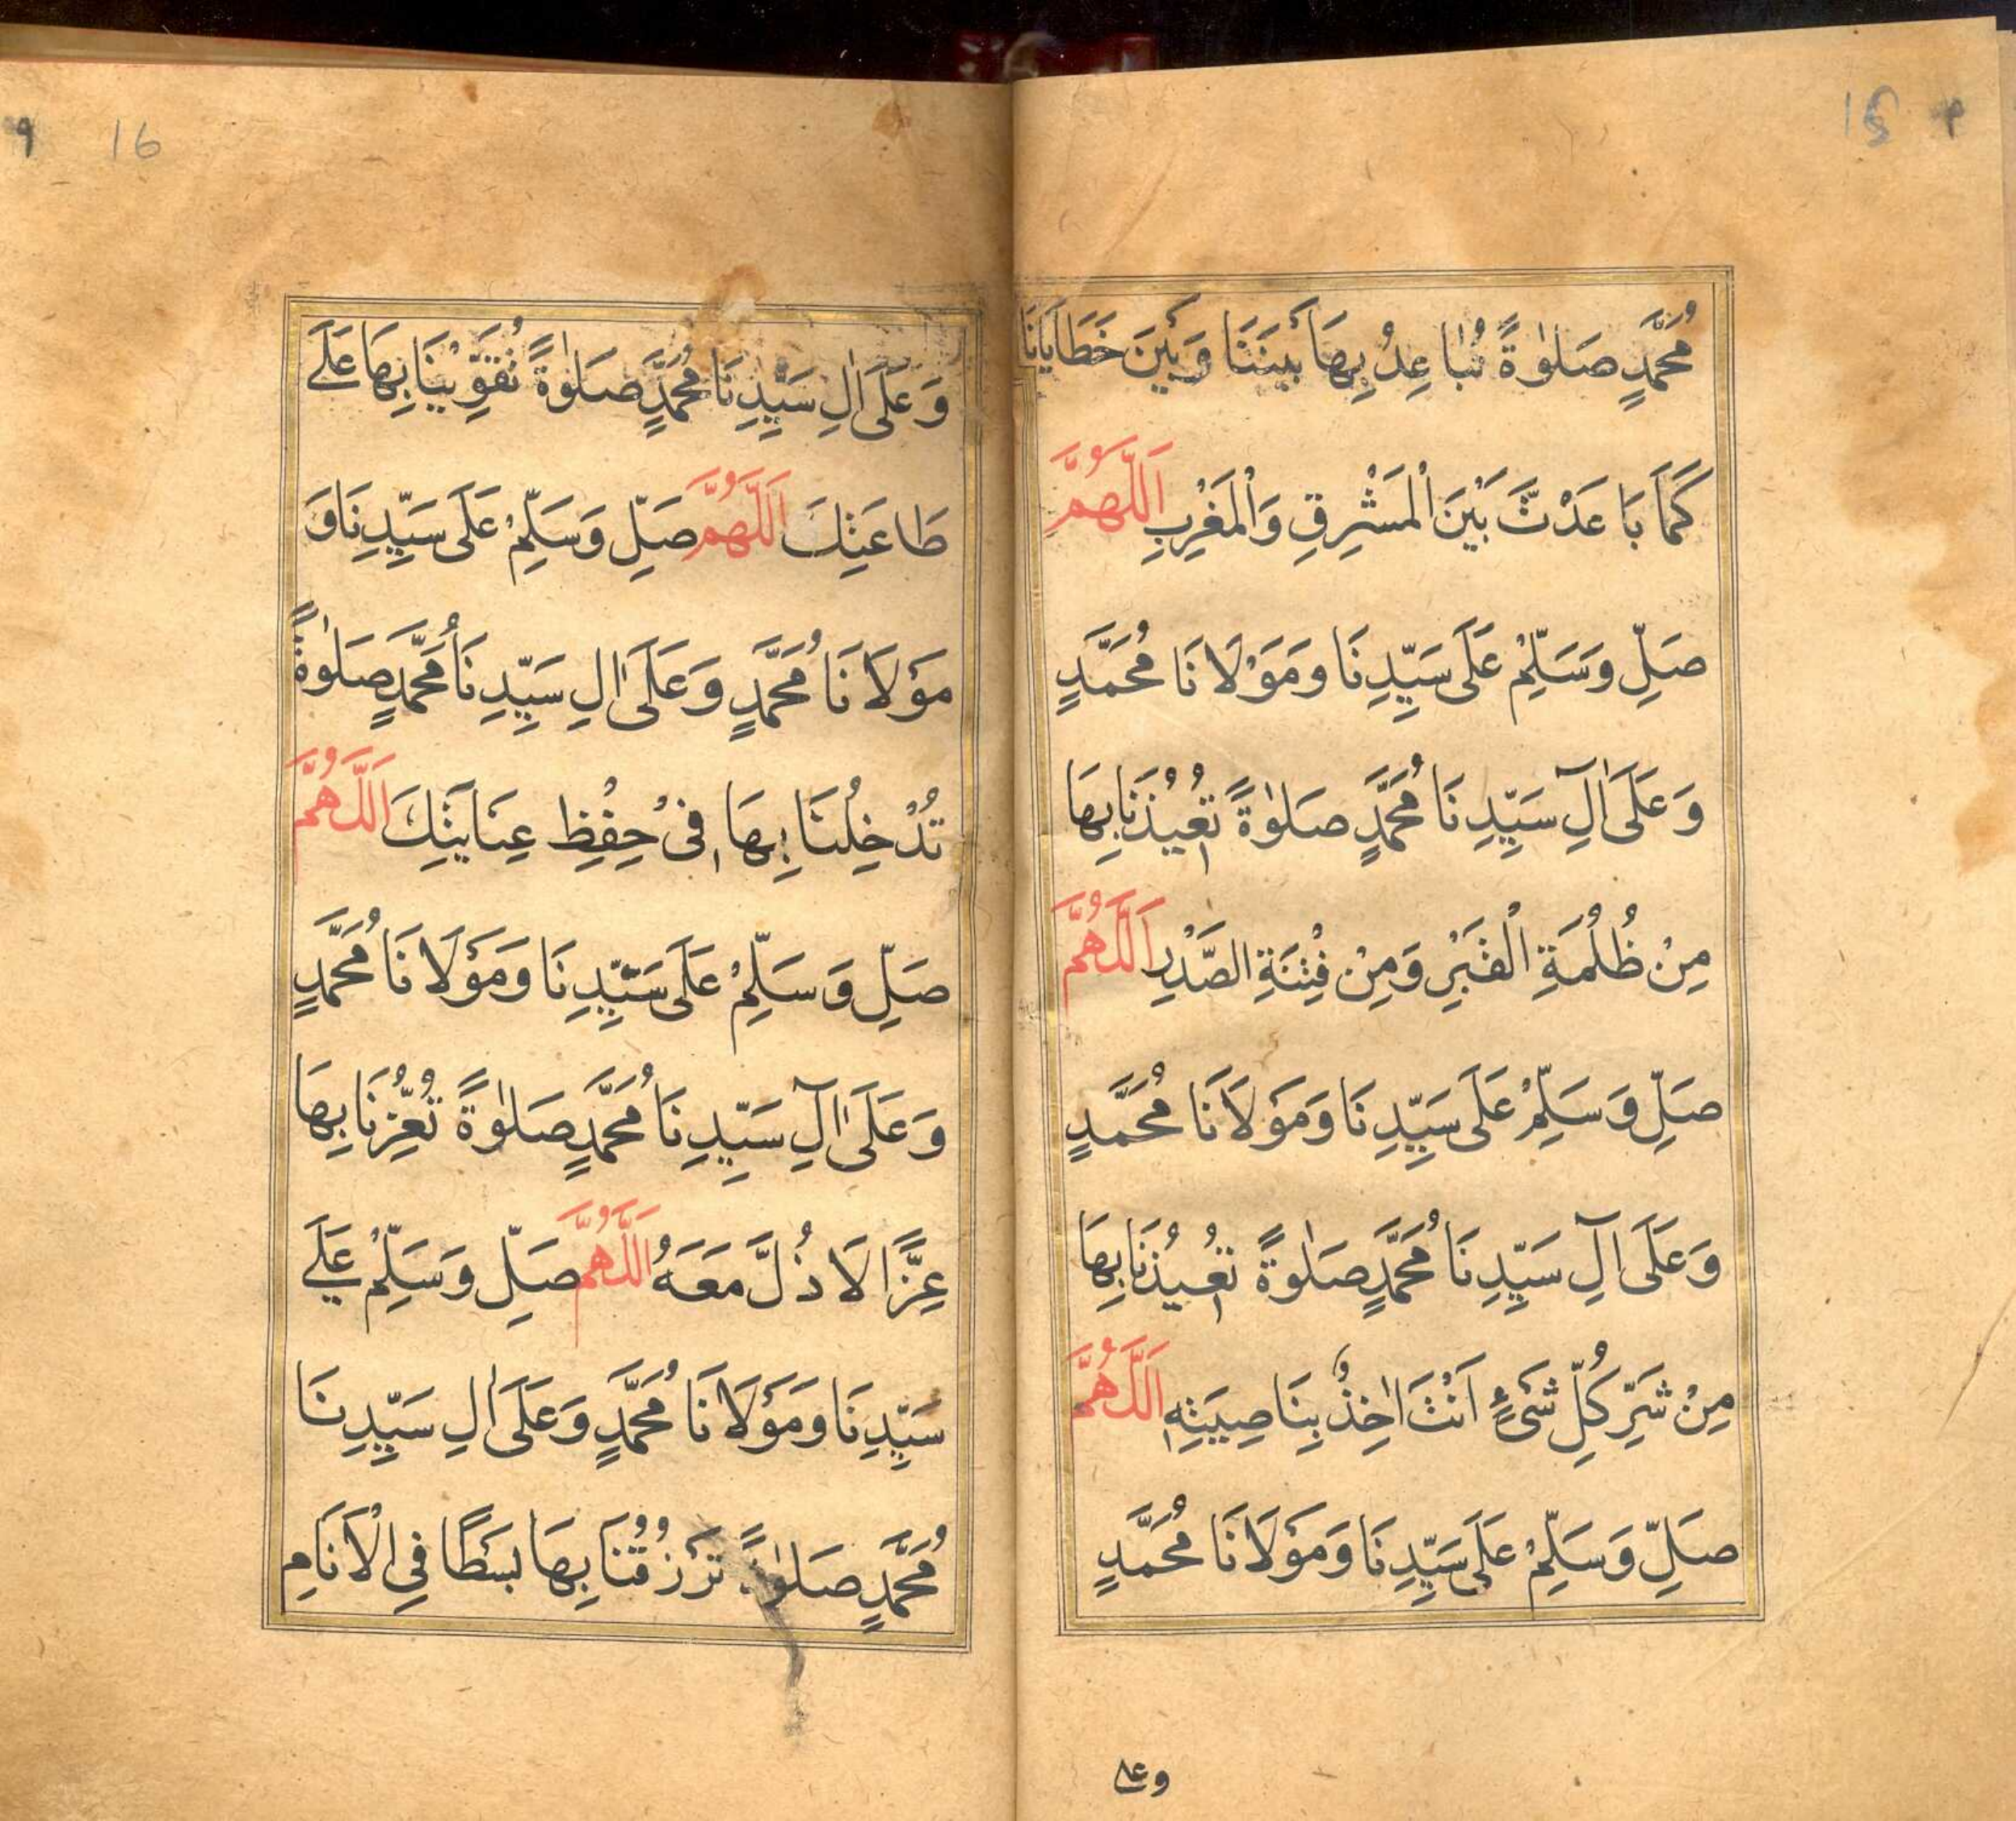 15
مُحَمَّدٍ صَلٰوةً تُبَاعِدُ بِهَا بَيْنَنَا وَبَيْنَ خَطَايَانَا
كَمَا بَاعَدْتَ بَيْنَ الْمَشْرِقِ وَالْمَغْرِبِ اَللّٰهُمَّ
صَلِّ وَسَلِّمْ عَلَى سَيِّدِنَا وَمَوْلَانَا مُحَمَّدٍ
وَعَلَى اٰلِ سَيِّدِنَا مُحَمَّدٍ صَلٰوةً تُعِيْذُنَا بِهَا
مِنْ ظُلُمَةِ الْقَبْرِ وَمِنْ فِتْنَةِ الصَّدْرِ اَللّٰهُمَّ
صَلِّ وَسَلِّمْ عَلَى سَيِّدِنَا وَمَوْلَانَا مُحَمَّدٍ
وَعَلَى اٰلِ سَيِّدِنَا مُحَمَّدٍ صَلٰوةً تُعِيْذُنَا بِهَا
مِنْ شَرِّ كُلِّ شَىْءٍ اَنْتَ اٰخِذٌ بِنَاصِيَتِهٖ اَللّٰهُمَّ
صَلِّ وَسَلِّمْ عَلَى سَيِّدِنَا وَمَوْلَانَا مُحَمَّدٍ
وعلى
٩ 16
وَعَلَى اٰلِ سَيِّدِنَا مُحَمَّدٍ صَلٰوةً تُقَوِّيْنَا بِهَا عَلَى
طَاعَتِكَ اَللّٰهُمَّ صَلِّ وَسَلِّمْ عَلَى سَيِّدِنَا وَ
مَوْلَانَا مُحَمَّدٍ وَعَلَى اٰلِ سَيِّدِنَا مُحَمَّدٍ صَلٰوةً
تُدْخِلُنَا بِهَا فِىْ حِفْظِ عِنَايَتِكَ اَللّٰهُمَّ
صَلِّ وَسَلِّمْ عَلَى سَيِّدِنَا وَمَوْلَانَا مُحَمَّدٍ
وَعَلَى اٰلِ سَيِّدِنَا مُحَمَّدٍ صَلٰوةً تُعِزُّنَا بِهَا
عِزًّا لَا ذُلَّ مَعَهُ اَللّٰهُمَّ صَلِّ وَسَلِّمْ عَلَى
سَيِّدِنَا وَمَوْلَانَا مُحَمَّدٍ وَعَلَى اٰلِ سَيِّدِنَا
مُحَمَّدٍ صَلٰوةً تَرْزُقُنَا بِهَا بَسْطًا فِى الْاَنَامِ